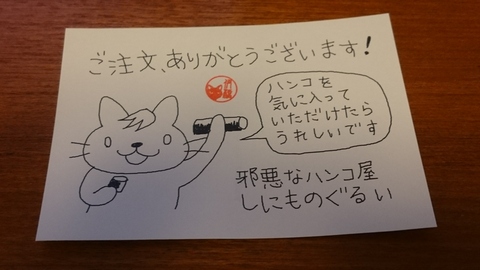 ご注文、ありがとうございます!
ハンコを
気に入って
いただけたら
うれしいです
邪悪なハンコ屋
しにものぐるい